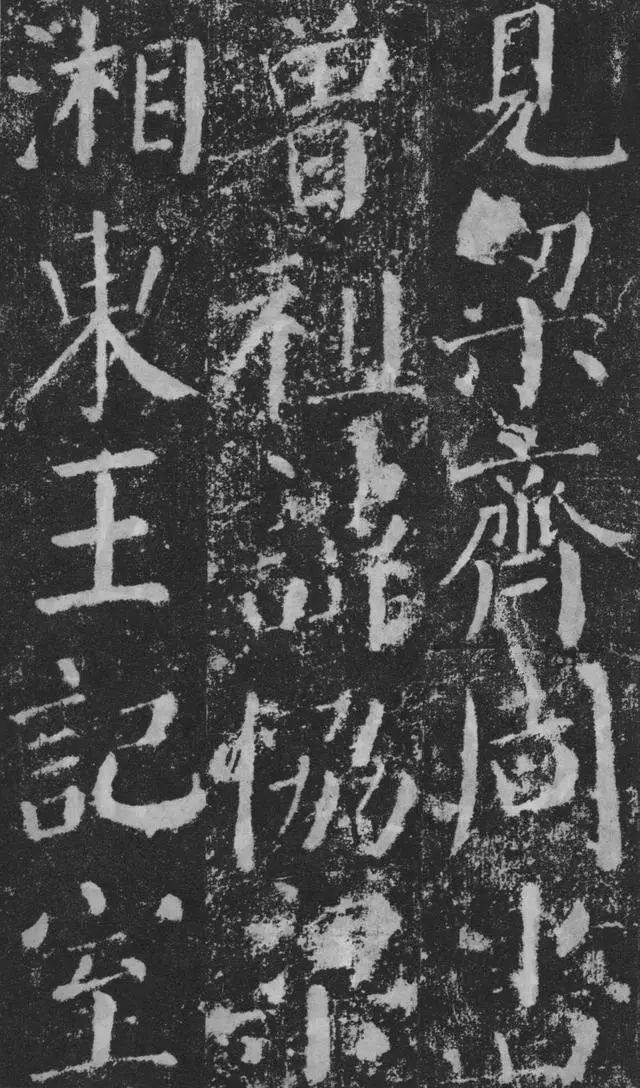 見梁齊周書
曾祖諱協梁
湘東王記室